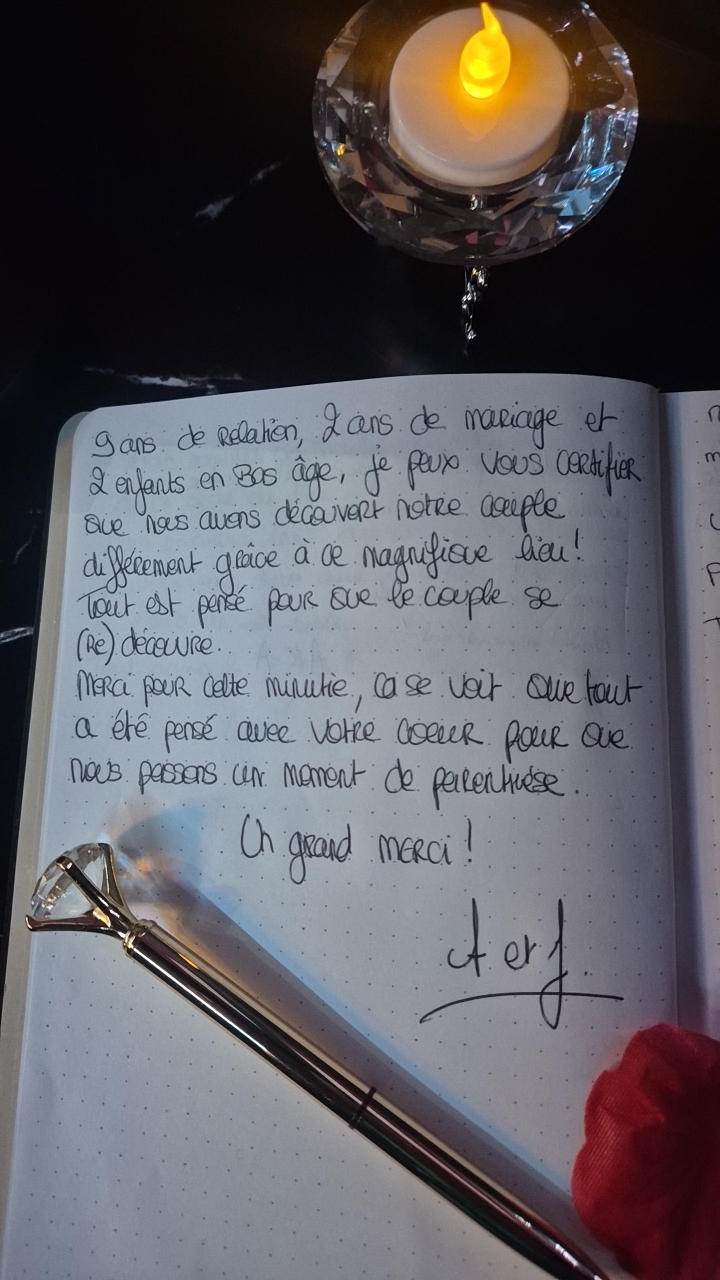 9 ans de relation, 2 ans de mariage et
2 enfants en Bas âge, je peux vous certifier
que nous avons découvert notre couple
différement grâce à ce magnifique lieu!
Tout est pensé pour que le couple se
(Re) découvre.
Merci pour cette minutie, ça se voit que tout
a été pensé avec votre coeur pour que
nous passions un moment de parenthèse.
Un grand merci!
A et J.